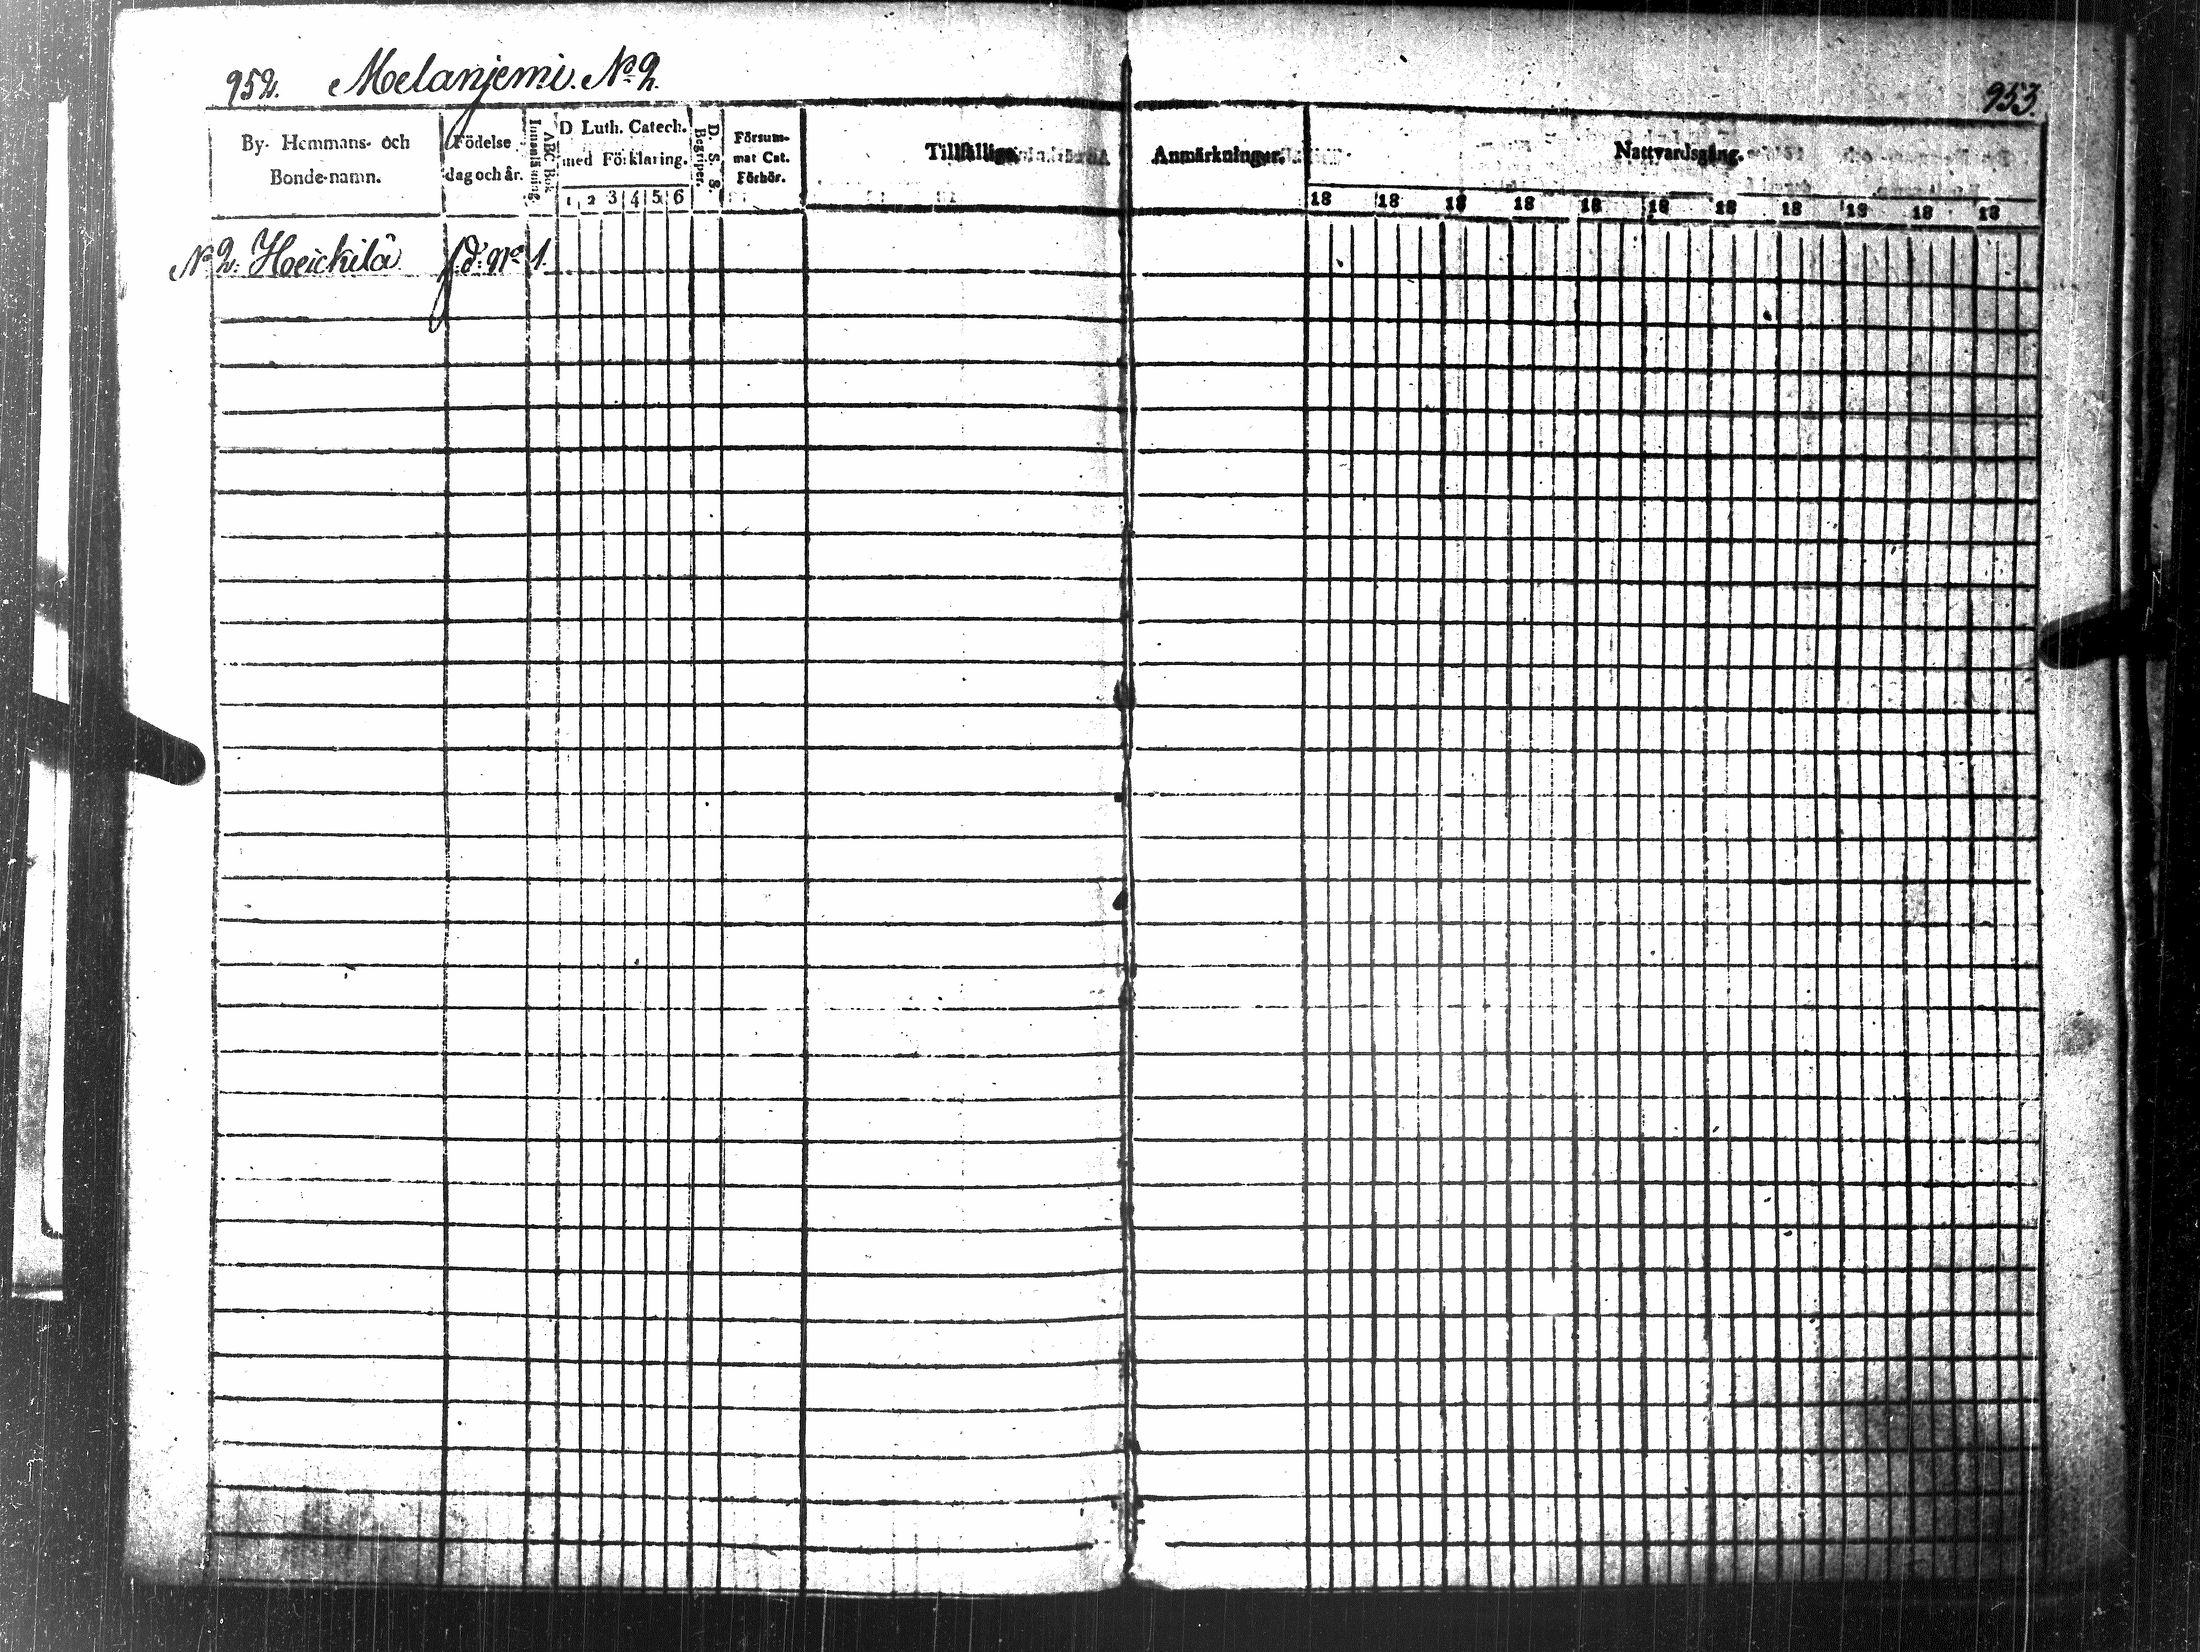 952. Melanjemi. No 2. 953.
By- Hemmans- och Bonde-namn.
Födelse dag och år.
ABC Bok Innanläsning.
D. Luth. Catech. med Förklaring.
1 2 3 4 5 6
D. S. S. Begriper.
Försummat Cat. Förhör.
Tillfälliga Anmärkningar.
Nattvardsgång.
18 18 18 18 18 18 18 18 18 18 18
No 2. Heickilä f.d. No 1.